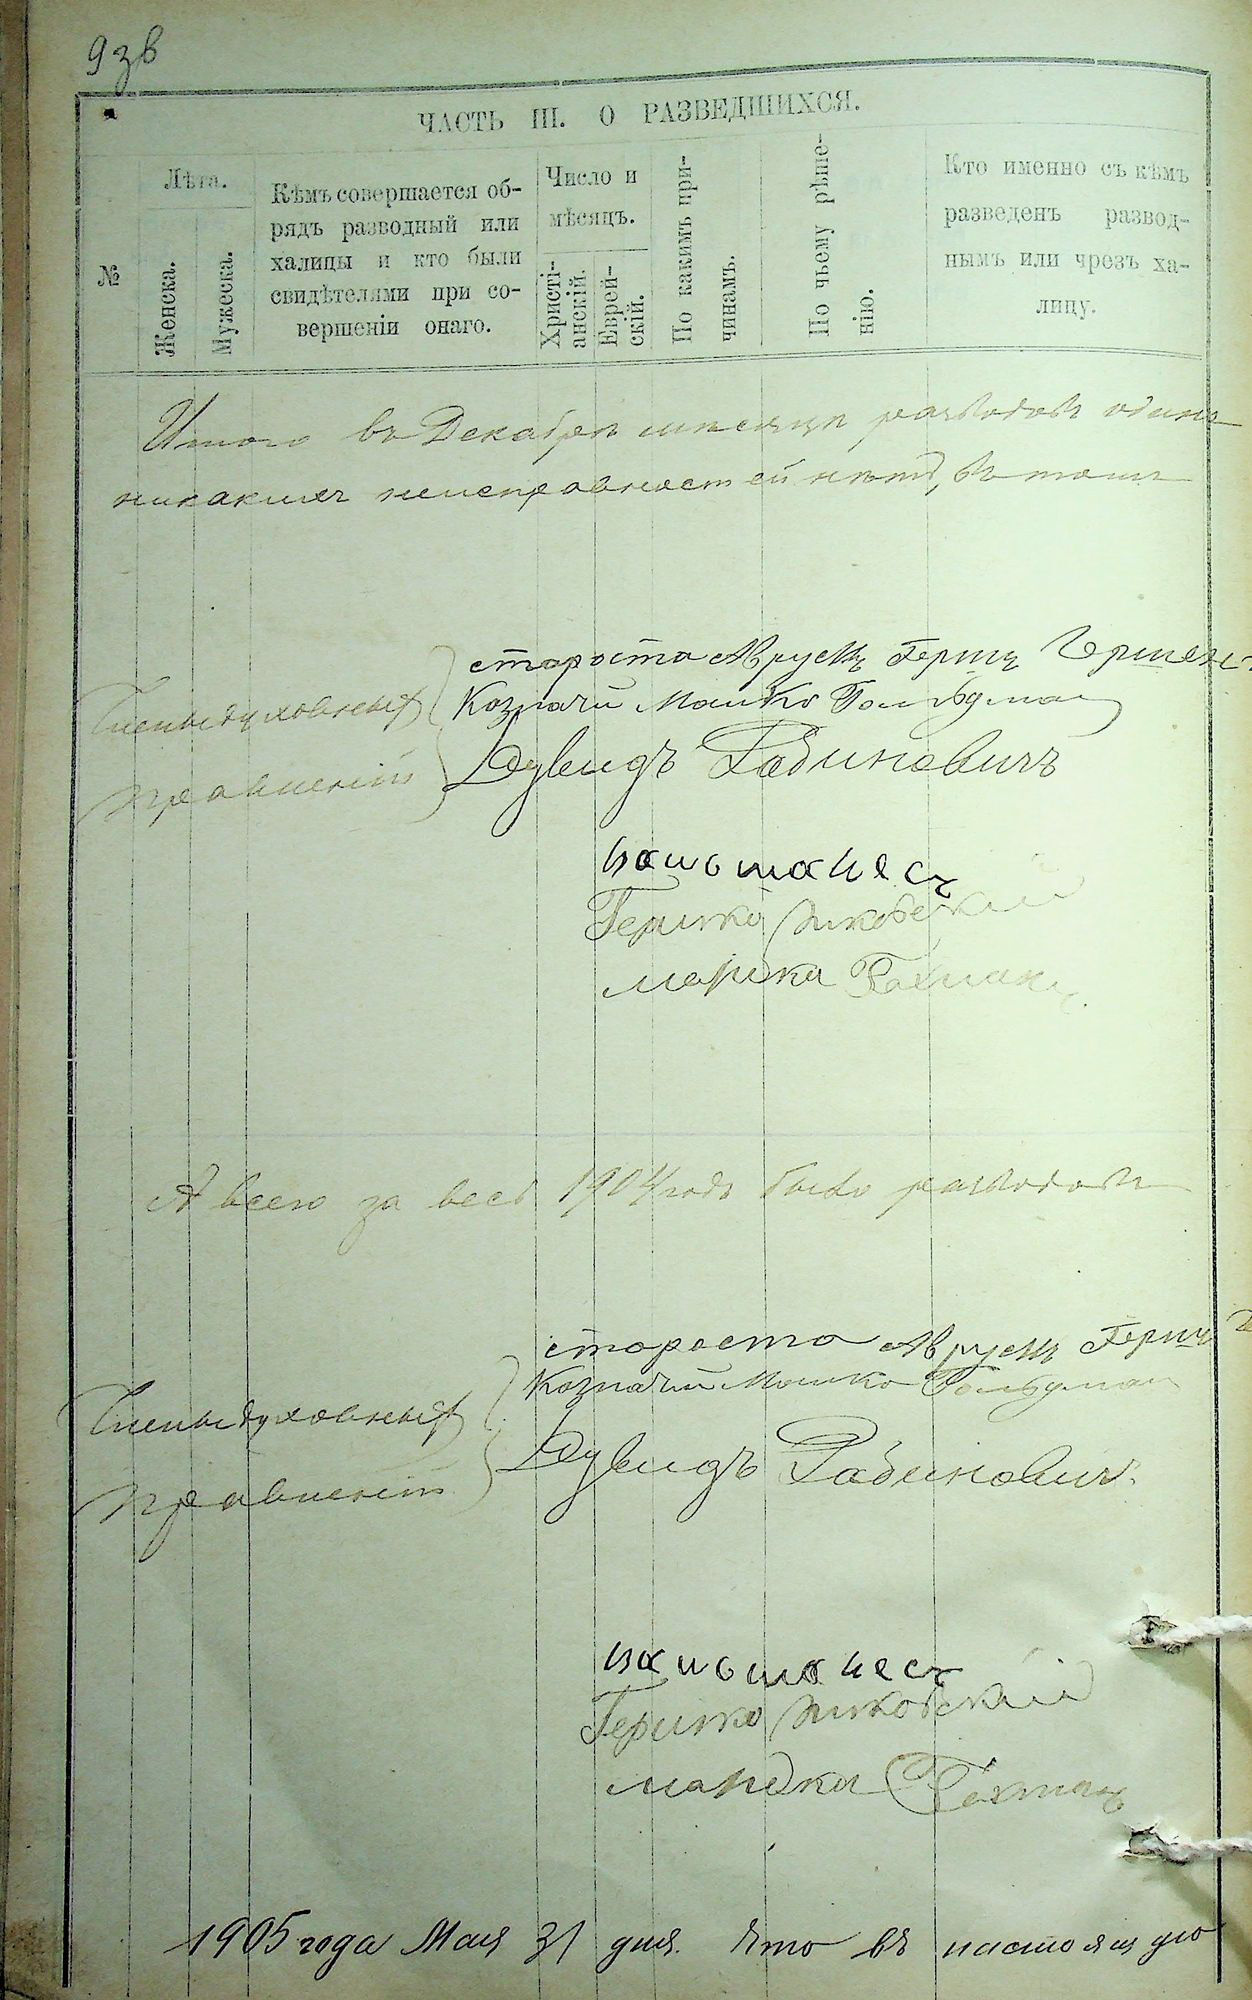 93в
ЧАСТЬ III. О РАЗВЕДШИХСЯ.
№
Лѣта.
Женска.
Мужеска.
Кѣмъ совершается об-
рядъ разводный или
халицы и кто были
свидѣтелями при со-
вершеніи онаго.
Число и
мѣсяцъ.
Христі-
анскій.
Еврей-
скій.
По какимъ при-
чинамъ.
По чьему рѣше-
нію.
Кто именно съ кѣмъ
разведенъ развод-
нымъ или чрезъ ха-
лицу.
Итого въ Декабрѣ мѣсяцѣ разводовъ одинъ
никакихъ неисправностей нѣтъ, въ томъ
Члены духовныхъ
правленій
староста Аврумъ Гершъ
Козначй Мошко Гольдман
Дувидъ Рабиновичъ
Гершко
мордка
А всего за весь 1904 годъ было разводовъ
Члены духовныхъ
правленій
староста Аврумъ Гершъ
Козначй Мошко Гольдман
Дувидъ Рабинович
Гершко
мордка
1905 года Мая 31 дня. Что въ настоящую